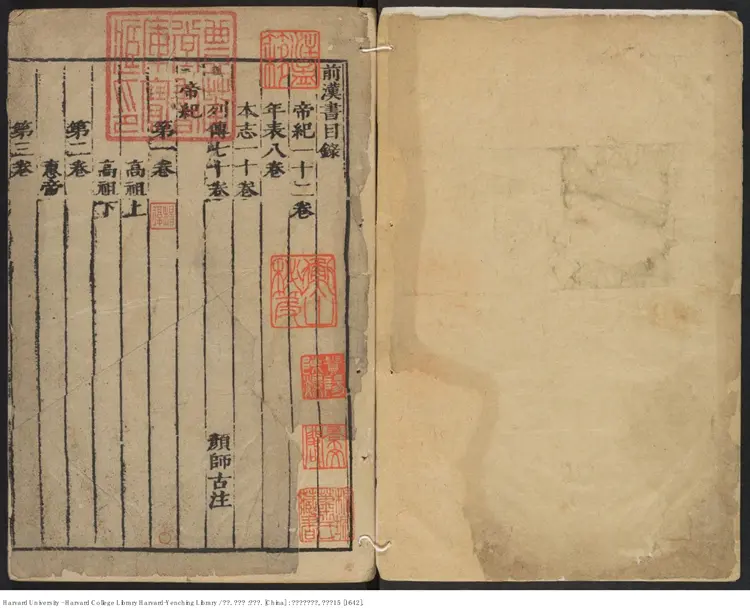 前漢書目錄
帝紀一十二卷
年表八卷
本志一十卷
列傳七十卷 顏師古注
帝紀
第一卷
高祖上
高祖下
第二卷
惠帝
第三卷
Harvard University - Harvard College Library Harvard-Yenching Library / ??. ??? :???. [China] : ???????, ???15 [1642].